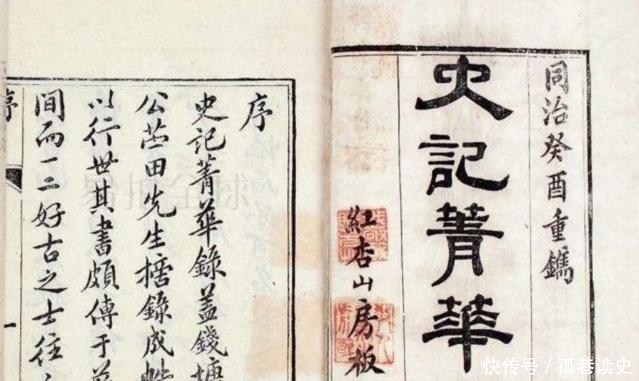 同治癸酉重鐫
史記菁華
紅杏山房板
序
史記菁華錄蓋錢塘
公苧田先生錄成
以行世其書頗傳于
間而一二好古之士往
序
一
快传号 / 孤巷读史